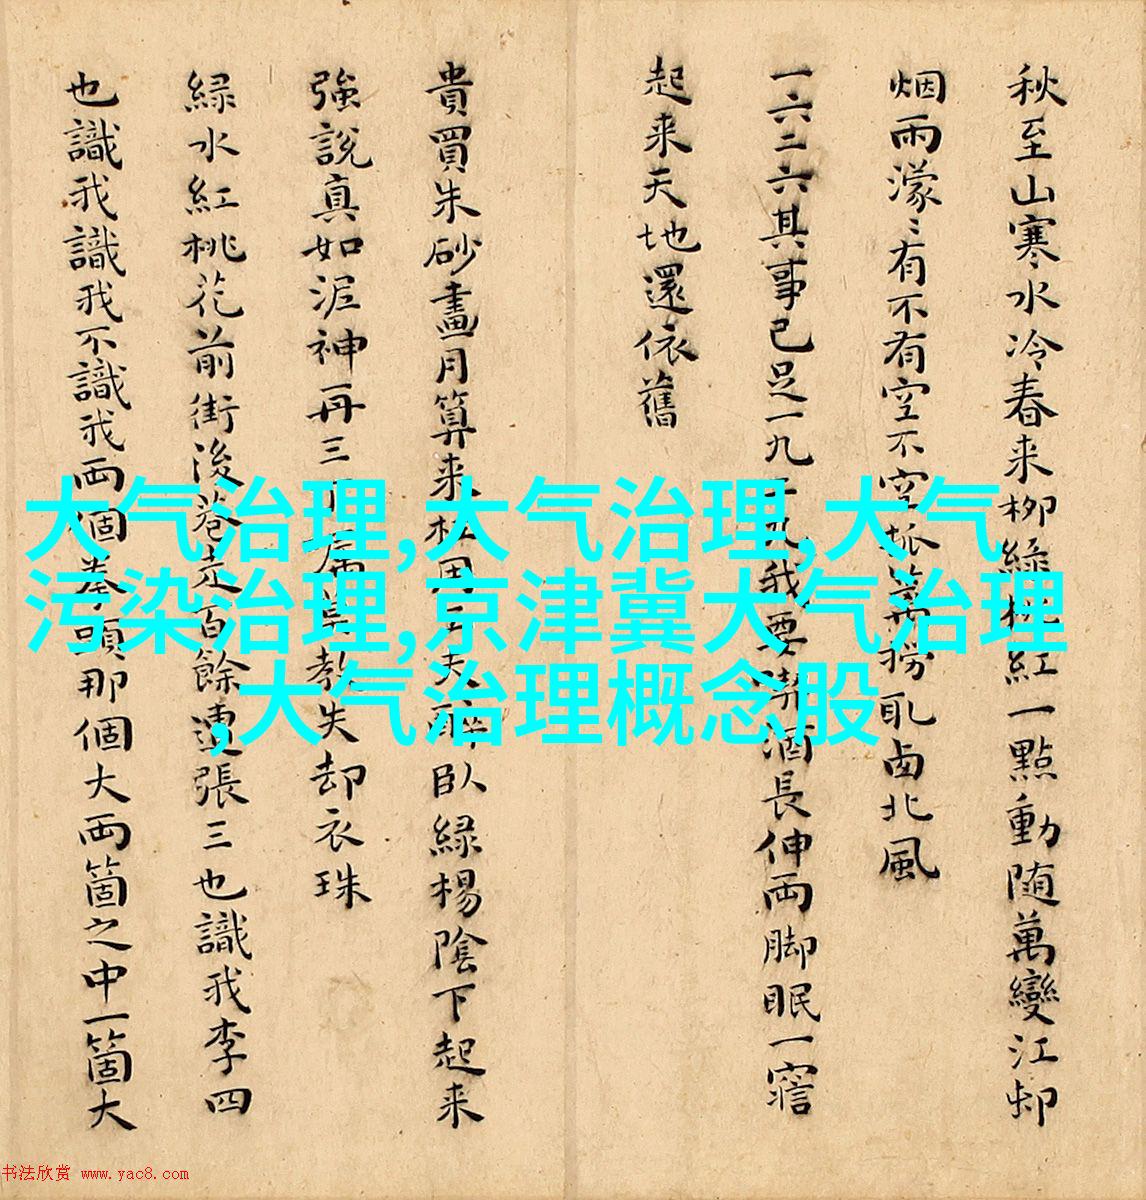 秋至山寒水冷春来柳綠桃紅一點動随萬變江邨
烟雨濛〻有不有空不空笊篱捞取西北風
一六二六其事已足一九二九我要喫酒長伸兩脚眠一寤
起来天地還依舊
貴買朱砂畫月算来枉用工夫醉臥綠楊陰下起来
強說真如泥神再三叮嘱莫教失却衣珠
綠水紅桃花前街後巷走百餘遭張三也識我李四
也識我識我不識我两個拳頭那個大两箇之中一箇大
大气治理,大气治理,大气
污染治理,京津冀大气治理
,大气治理概念股
书法欣赏 www.yac8.com